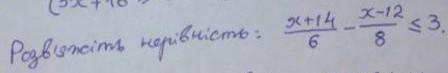 Розв'яжіть нерівність: $\frac{x+14}{6} - \frac{x-12}{8} \leq 3.$